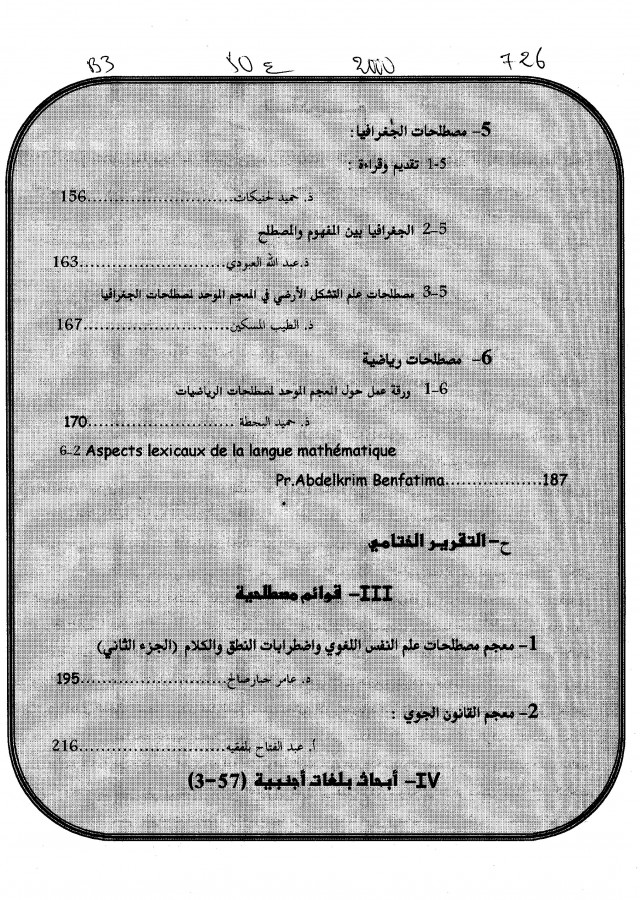 B3 50 ع 2000 726
5- مصطلحات الجغرافيا:
5-1 تقديم وقراءة :
ذ. حميد لحنيكات..........................156
5-2 الجغرافيا بين المفهوم والمصطلح
ذ.عبد الله العبودي..........................163
5-3 مصطلحات علم التشكل الأرضي في المعجم الموحد لمصطلحات الجغرافيا
ذ. الطيب المسكين..........................167
6- مصطلحات رياضية
6-1 ورقة عمل حول المعجم الموحد لمصطلحات الرياضيات
ذ. حميد البحطة ..........................170
6-2 Aspects lexicaux de la langue mathématique
Pr.Abdelkrim Benfatima..................187
ح- التقرير الختامي
III- قوائم مصطلحية
1- معجم مصطلحات علم النفس اللغوي واضطرابات النطق والكلام (الجزء الثاني)
د. عامر جبار صالح..........................195
2- معجم القانون الجوي :
أ. عبد الفتاح بلفقيه..........................216
IV- أبحاث بلغات أجنبية (57-3)